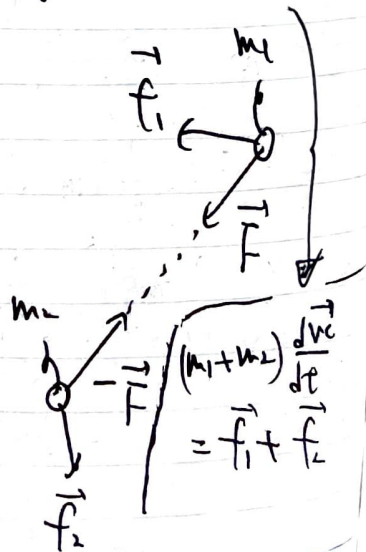 m₁
f⃗₁
F⃗
m₂
-F⃗
(m₁+m₂) dv⃗c/dt
= f⃗₁ + f⃗₂
f⃗₂